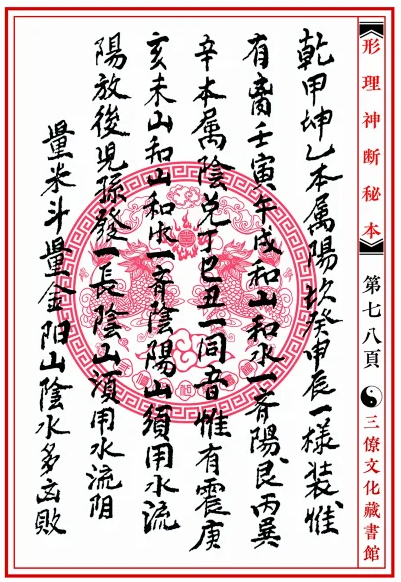 形理神断秘本 第七八頁 三僚文化藏書館
乾甲坤乙本属陽坎癸申辰一樣装惟
有离壬寅午戌和山和水一斉陽艮丙巽
辛本属陰兑丁巳丑一同音惟有震庚
亥未山和山和水一斉陰陽山須用水流
陽放後児孫發一長陰山須用水流阴
量米斗量金阳山陰水多玄敗